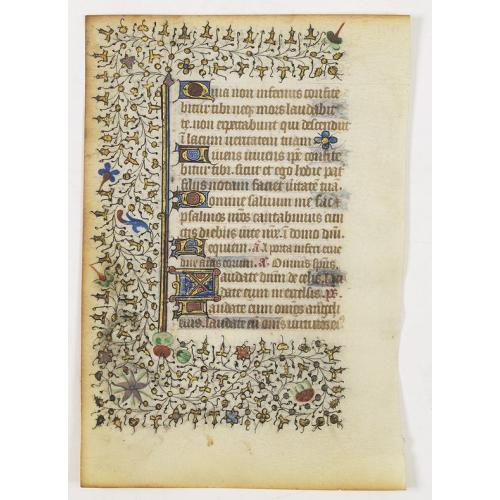 Quia non infernus confite
bitur tibi neqz mors laudabit
te. non expectabunt qui descendūt
ī lacum veritatem tuam
Vivens vivens ipe confite
bitur tibi. sicut et ego hodie pat
filiis notam faciet vitatē tuā.
Domine salvum me fac
psalmos nrōs cantabimus cun
ctis diebus vite nrē. ī domo dnī.
Requiem. ā A porta inferi erue
dne aīas eorum. a. Omnis spūs
Laudate dnūm de celis. lau
date eum in excelsis. ps.
Laudate eum omēs angeli
eius. laudate eū oms virtutes ei